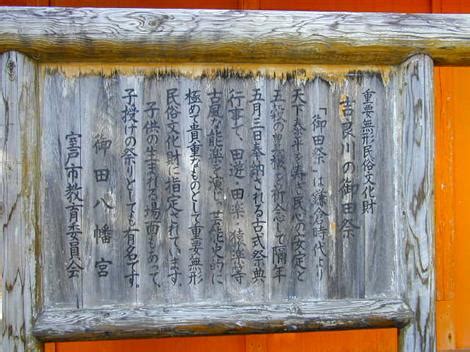 重要無形民俗文化財
吉良川の御田祭
「御田祭」は鎌倉時代より
天下泰平を寿ぎ民心の安定と
五穀の豊穣を祈念して隔年
五月三日奉納される古式祭典
行事で、田遊・田楽・猿楽等
古風な能楽を演じ、芸能史的に
極めて貴重なものとして重要無形
民俗文化財に指定されています。
子供の生まれる場面もあって、
子授けの祭りとしても有名です。
御田八幡宮
室戸市教育委員会